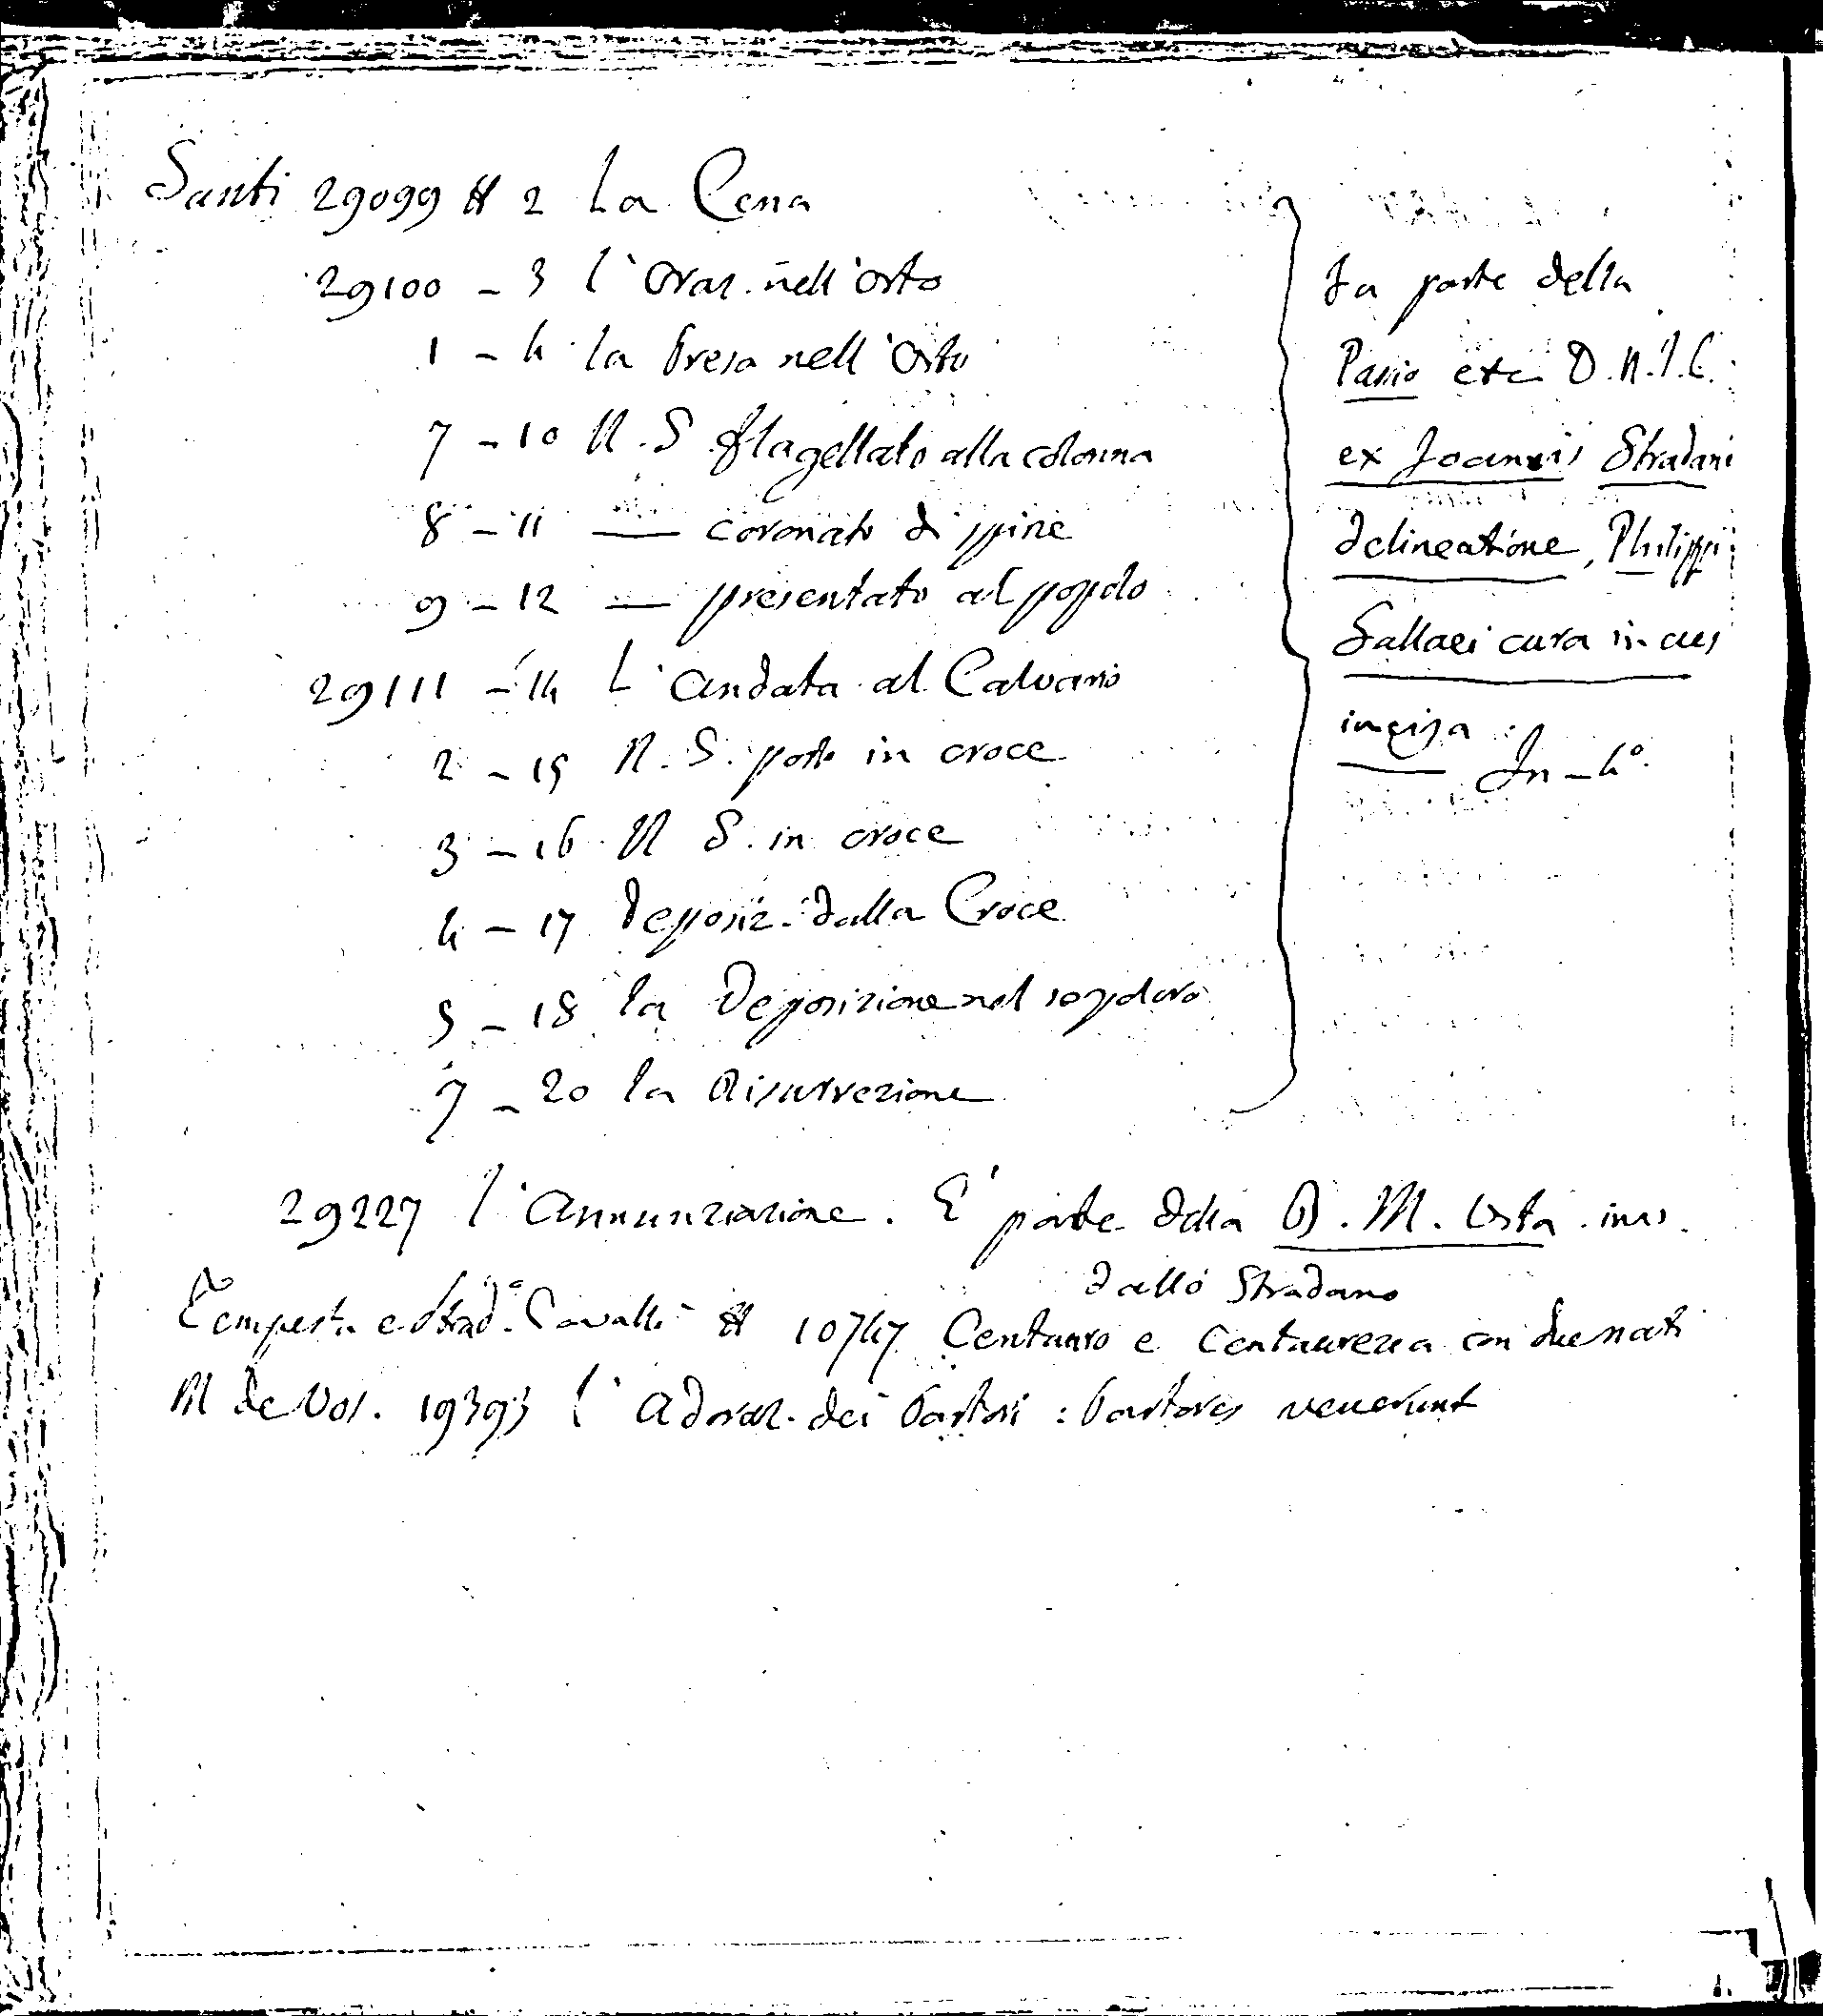 Santi 29099 # 2 La Cena
29100 - 3 l'Oraz. nell'orto
1 - 4 la Presa nell'Orto
7 - 10 N. S. flagellato alla colonna
8 - 11 — coronato di spine
9 - 12 — presentato al popolo
29111 - 14 L'andata al Calvario
2 - 15 N. S. posto in croce
3 - 16 N S. in croce
4 - 17 Deposiz. dalla Croce
5 - 18 la Deposizione nel sepolcro
7 - 20 la Risurrezione
Fa parte della
Passio etc D.N.I.C.
ex Joannis Stradani
delineatione, Philippi
Gallaei cura in aes
incisa.
In-4°.
29227 l'Annunziazione. E' parte della B. M. Vita inv.
dallo Stradano
Tempesta e Strad° Cavalli # 10747 Centauro e Centauressa con due nati
M de Vos. 19393 l'Adoraz. dei Pastori : Pastores venerunt